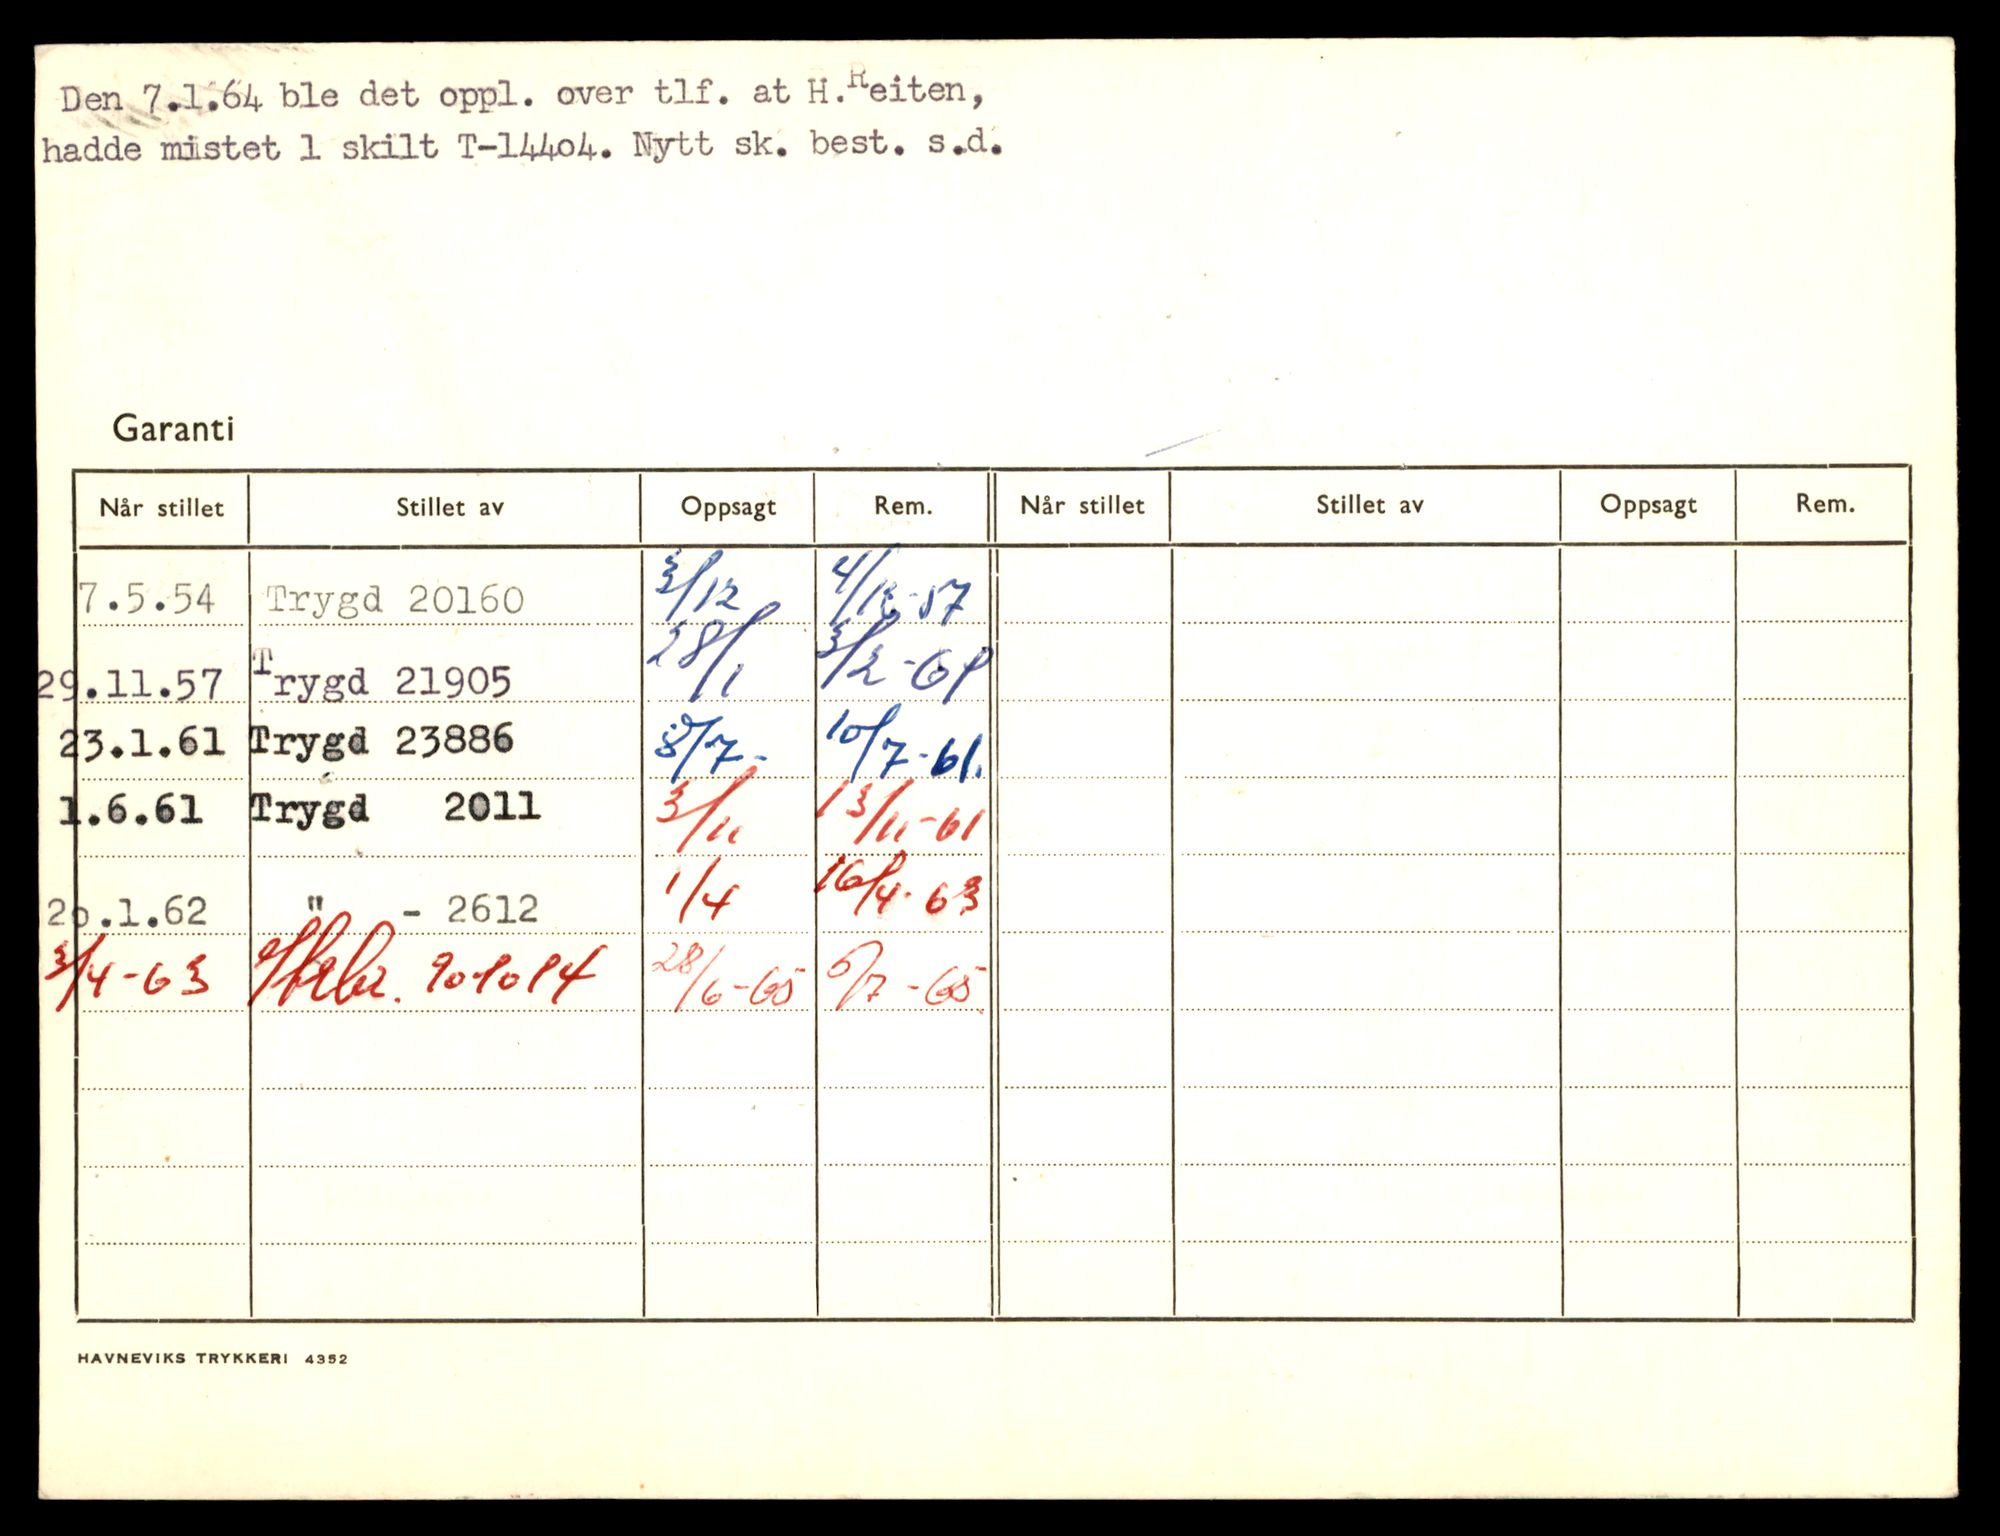 Den 7.1.64 ble det oppl. over tlf. at H.Reiten,
hadde mistet 1 skilt T-14404. Nytt sk. best. s.d.
Garanti
Når stillet Stillet av Oppsagt Rem. Når stillet Stillet av Oppsagt Rem.
7.5.54 Trygd 20160 3/12 4/12-57
29.11.57 Trygd 21905 28/1 3/2-61
23.1.61 Trygd 23886 8/7- 10/7-61.
1.6.61 Trygd 2011 3/11 13/11-61
20.1.62 " - 2612 1/4 16/4-63
3/4-63 28/6-65 6/7-65
HAVNEVIKS TRYKKERI 4352